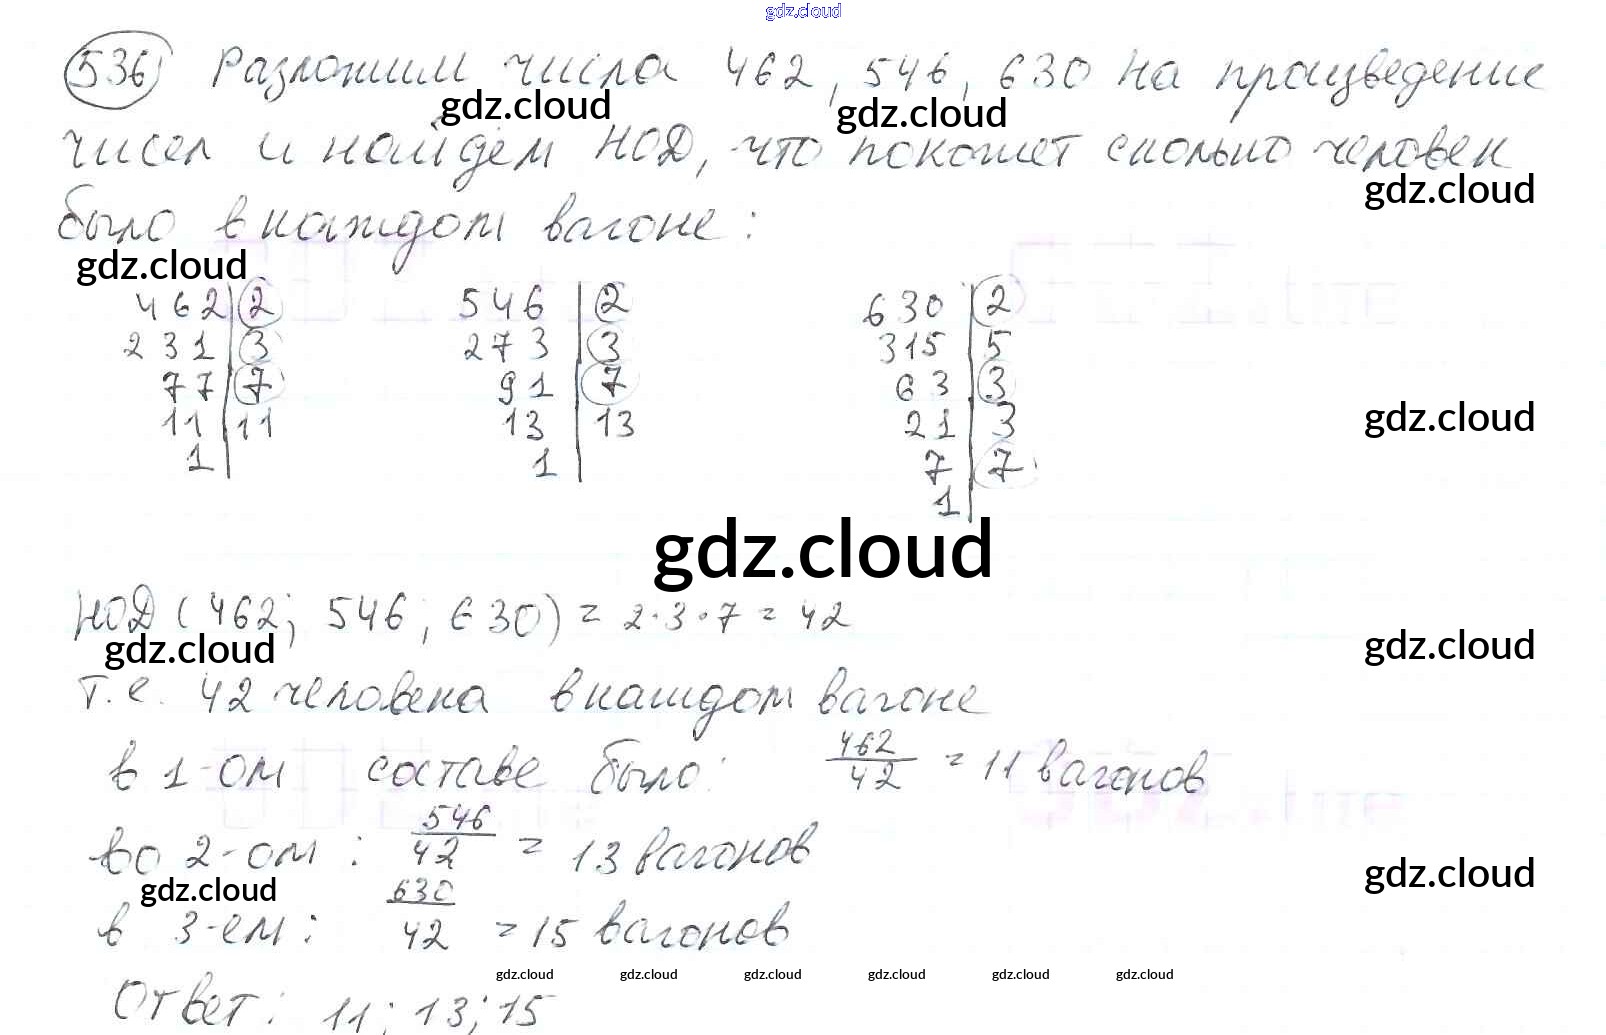 gdz.cloud
536) Разложим числа 462, 546, 630 на произведение
gdz.cloud gdz.cloud
чисел и найдем НОД, что покажет сколько человек
gdz.cloud
было в каждом вагоне:
gdz.cloud
462 | 2 546 | 2 630 | 2
231 | 3 273 | 3 315 | 5
77 | 7 91 | 7 63 | 3
11 | 11 13 | 13 21 | 3
1 | 1 | 7 | 7
1 |
gdz.cloud
gdz.cloud
НОД (462; 546; 630) = 2·3·7 = 42
gdz.cloud gdz.cloud
т.е. 42 человека в каждом вагоне
в 1-ом составе было: 462/42 = 11 вагонов
во 2-ом: 546/42 = 13 вагонов
gdz.cloud gdz.cloud
в 3-ем: 630/42 = 15 вагонов
gdz.cloud gdz.cloud gdz.cloud gdz.cloud gdz.cloud gdz.cloud
Ответ: 11; 13; 15